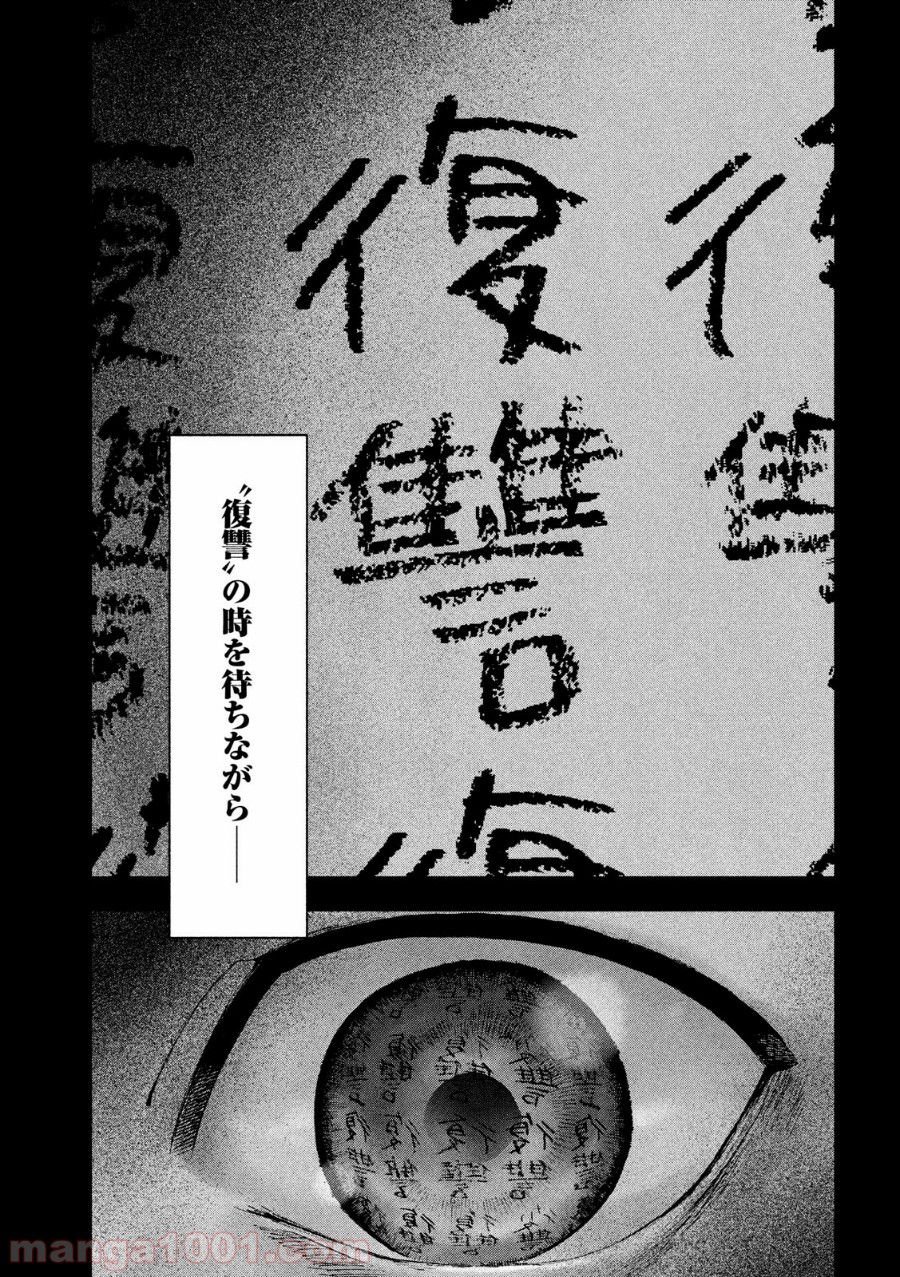 復讐
復
〝復讐〟の時を待ちながら――
manga1001.com